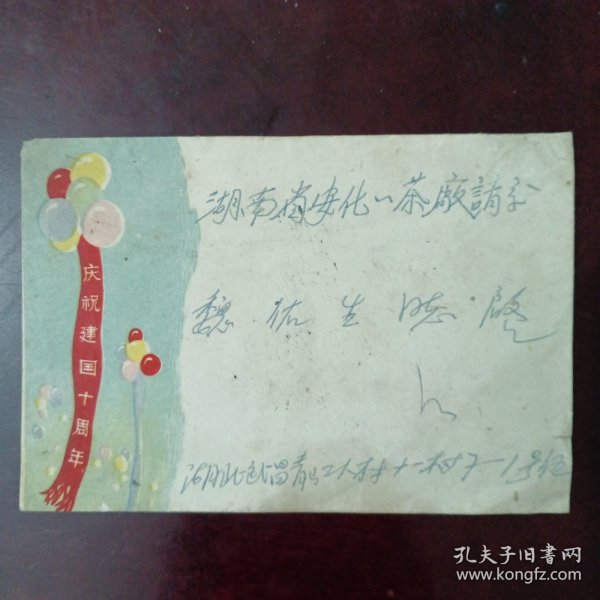 庆祝建国十周年
湖南省安化茶厰請交
魏佑生 同志 啟
湖北武昌青山工人村十一村
孔夫子旧书网
www.kongfz.com